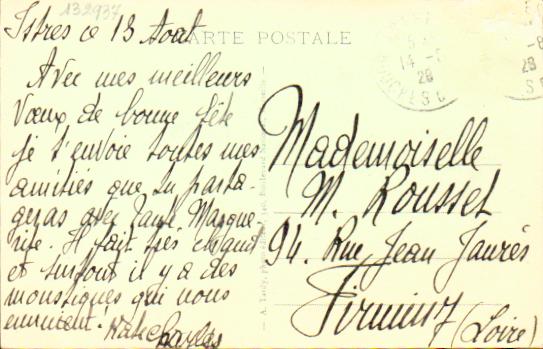 132937
Istres ce 13 Aout
CARTE POSTALE
Avec mes meilleurs
Vœux de bonne fête
je t'envoie toutes mes
amitiés que tu parta-
geras avec Tante Margue-
rite. Il fait très chaud
et surtout il y a des
moustiques qui nous
ennuient!
Charles
Mademoiselle
M. Rousset
94. Rue Jean Jaurès
Firminy
(Loire)
14 -8
28